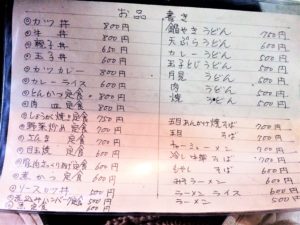 お品書き
◎カツ丼 800円
◎牛丼 800円
◎親子丼 650円
◎玉子丼 600円
◎カツカレー 800円
◎カレーライス 600円
◎とんかつ定食 800円
◎肉皿定食 800円
◎しょうが焼き定食 750円
◎野菜炒め定食 700円
◎さんま定食 700円
◎目玉焼定食 600円
定食 600円
◎煮かつ定食
◎ソースカツ丼
鍋やきうどん 750円
天ぷらうどん 600円
カレーうどん 600円
玉子とじうどん 500円
月見うどん 500円
肉うどん
うどん
五目あんかけ焼そば 700円
五目 700円
チャーシューメン 700円
冷し中華そば 700円
もやしそば 600円
みそラーメン 600円
ラーメンライス 600円
ラーメン 500円